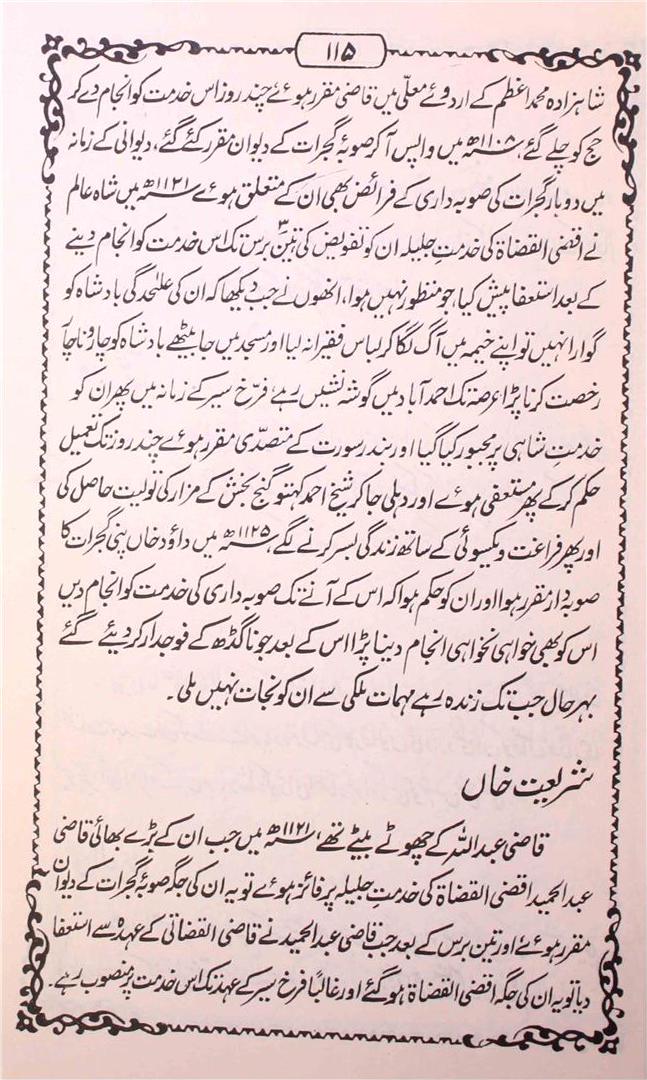 ۱۱۵
شاہزادہ محمد اعظم کے اردوئے معلّی میں قاضی مقرر ہوئے چند روز اس خدمت کو انجام دے کر
حج کو چلے گئے، ۱۱۰۸ھ میں واپس آکر صوبۂ گجرات کے دیوان مقرر کئے گئے، دیوانی کے زمانہ
میں دوبار گجرات کی صوبہ داری کے فرائض بھی ان کے متعلق ہوئے ۱۱۲۱ھ میں شاہ عالم
نے اقضی القضاۃ کی خدمتِ جلیلہ ان کو تفویض کی تین۳ برس تک اس خدمت کو انجام دینے
کے بعد استعفا پیش کیا، جو منظور نہیں ہوا، انھوں نے جب دیکھا کہ ان کی علٰحدگی بادشاہ کو
گوارا نہیں تو اپنے خیمہ میں آگ لگا کر لباس فقیرانہ لیا اور مسجد میں جا بیٹھے بادشاہ کو چار و ناچار
رخصت کرنا پڑا عرصہ تک احمد آباد میں گوشہ نشیں رہے، فرّخ سیر کے زمانہ میں پھر ان کو
خدمتِ شاہی پر مجبور کیا گیا اور بندر سورت کے متصدّی مقرر ہوئے چند روز تک تعمیل
حکم کر کے پھر مستعفی ہوئے اور دہلی جا کر شیخ احمد کھتو گنج بخش کے مزار کی تولیت حاصل کی
اور پھر فراغت و یکسوئی کے ساتھ زندگی بسر کرنے لگے، ۱۱۲۵ھ میں داؤد خاں پنی گجرات کا
صوبہ دار مقرر ہوا اور ان کو حکم ہوا کہ اس کے آنے تک صوبہ داری کی خدمت کو انجام دیں
اس کو بھی خواہی نخواہی انجام دینا پڑا اس کے بعد جوناگڈھ کے فوجدار کردیئے گئے
بہرحال جب تک زندہ رہے مہمات ملکی سے ان کو نجات نہیں ملی۔
شریعت خاں
قاضی عبداللہ کے چھوٹے بیٹے تھے، ۱۱۲۱ھ میں جب ان کے بڑے بھائی قاضی
عبدالحمید اقضی القضاۃ کی خدمتِ جلیلہ پر فائز ہوئے تو یہ ان کی جگہ صوبۂ گجرات کے دیوان
مقرر ہوئے اور تین برس کے بعد جب قاضی عبدالحمید نے قاضی القضاتی کے عہدہ سے استعفا
دیا تو یہ ان کی جگہ اقضی القضاۃ ہو گئے اور غالباً فرخ سیر کے عہد تک اس خدمت پر منصوب رہے۔